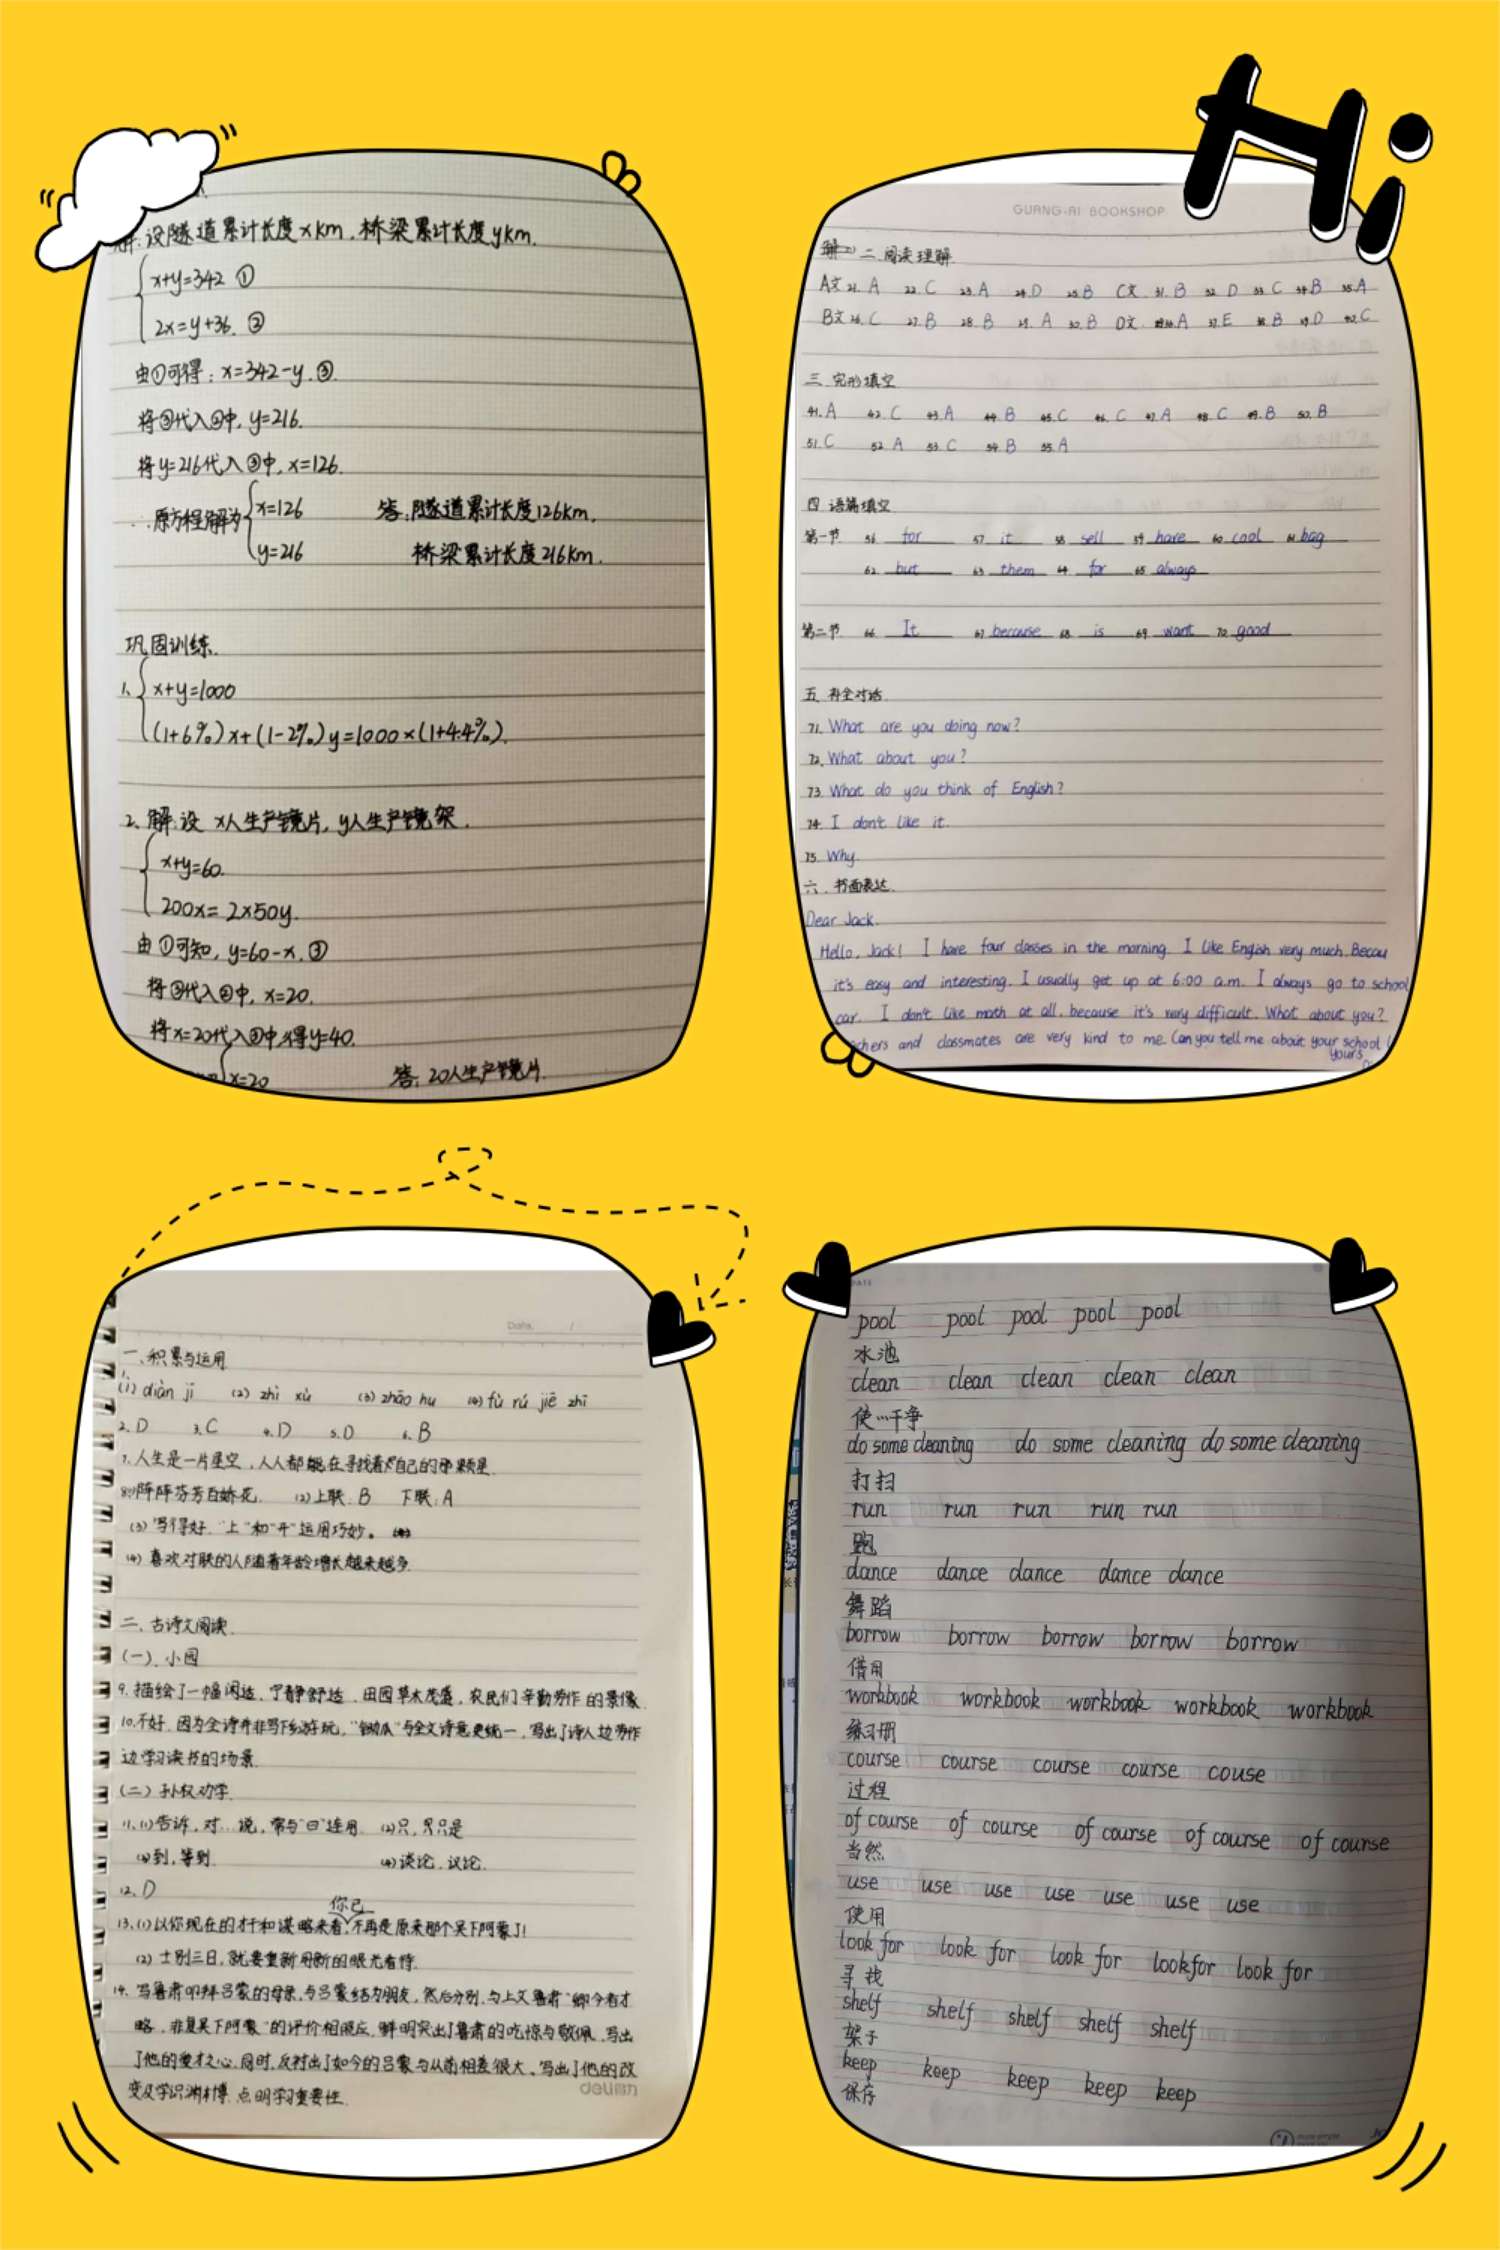 Hi
解:设隧道累计长度xkm,桥梁累计长度ykm.
x+y=342 ①
2x=y+36. ②
由①可得:x=342-y.③
将③代入②中,y=216.
将y=216代入③中,x=126.
∴原方程解为 x=126
y=216
答:隧道累计长度126km,
桥梁累计长度216km.
巩固训练.
1. x+y=1000
(1+6%)x+(1-2%)y=1000×(1+4.4%).
2. 解:设 x人生产镜片,y人生产镜架.
x+y=60.
200x=2×50y.
由①可知,y=60-x.③
将③代入②中,x=20.
将x=20代入③中,得y=40.
x=20
答:20人生产镜片.
GUANG-AI BOOKSHOP
二.阅读理解
A文 21. A 22. C 23. A 24. D 25. B C文. 31. B 32. D 33. C 34. B 35. A
B文 26. C 27. B 28. B 29. A 30. B D文. 36. A 37. E 38. B 39. D 40. C
三.完形填空
41. A 42. C 43. A 44. B 45. C 46. C 47. A 48. C 49. B 50. B
51. C 52. A 53. C 54. B 55. A
四 语篇填空
第一节 56 for 57 it 58 sell 59 have 60 cool 61 bag
62. but 63 them 64 for 65 always
第二节. 66. It 67 because 68 is 69 want 70 good
五 补全对话
71. What are you doing now?
72. What about you?
73. What do you think of English?
74. I don't like it.
75. Why.
六.书面表达.
Dear Jack.
Hello, Jack! I have four classes in the morning. I like English very much. Becau
it's easy and interesting. I usually get up at 6:00 a.m. I always go to school
car. I don't like math at all, because it's very difficult. What about you?
achers and classmates are very kind to me. Can you tell me about your school
yours
Date. /
一、积累与运用
(1) diàn jī (2) zhì xù (3) zhāo hu (4) fù rú jiē zhī
2. D 3. C 4. D 5. D 6. B
7. 人生是一片星空,人人都能在寻找着自己的那颗星.
8.(1)阵阵芬芳百娇花. (2)上联:B 下联:A
(3) 写得好."上"和"开"运用巧妙。
(4) 喜欢对联的人随着年龄增长越来越多.
二、古诗文阅读.
(一).小园
9. 描绘了一幅闲适、宁静舒适、田园草木茂盛,农民们辛勤劳作的景像.
10. 不好.因为全诗并非写下乡游玩,"锄瓜"与全文诗意更统一,写出了诗人边劳作
边学习读书的场景.
(二)孙权劝学.
11.(1)告诉,对…说,常与"曰"连用. (2)只,只是
(3)到,等到. (4)谈论.议论.
12. D
你已
13.(1)以你现在的才干和谋略来看,不再是原来那个吴下阿蒙了!
(2) 士别三日,就要重新用新的眼光看待.
14. 写鲁肃叩拜吕蒙的母亲,与吕蒙结为朋友,然后分别,与上文鲁肃"卿今者才
略,非复吴下阿蒙"的评价相照应.鲜明突出了鲁肃的吃惊与敬佩,写出
了他的爱才之心.同时,反衬出了如今的吕蒙与从前相差很大。写出了他的改
变及学识渊博.点明学习重要性.
deli
DATE
pool pool pool pool pool
水池
clean clean clean clean clean
使…干净
do some cleaning do some cleaning do some cleaning
打扫
run run run run run
跑
dance dance dance dance dance
舞蹈
borrow borrow borrow borrow borrow
借用
workbook workbook workbook workbook workbook
练习册
course course course course couse
过程
of course of course of course of course of course
当然
use use use use use use use
使用
look for look for look for lookfor look for
寻找
shelf shelf shelf shelf shelf
架子
keep keep keep keep keep
保存